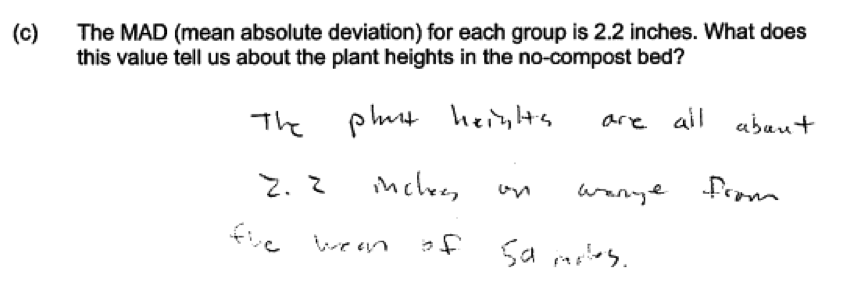 (c) The MAD (mean absolute deviation) for each group is 2.2 inches. What does
this value tell us about the plant heights in the no-compost bed?
The plant heights are all about
2.2 inches on average from
the mean of 50 inches.